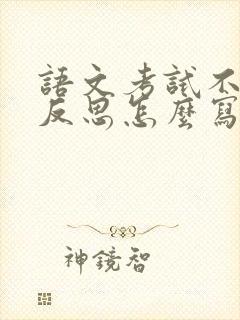 語文考試不
反思怎麼寫
神鏡智